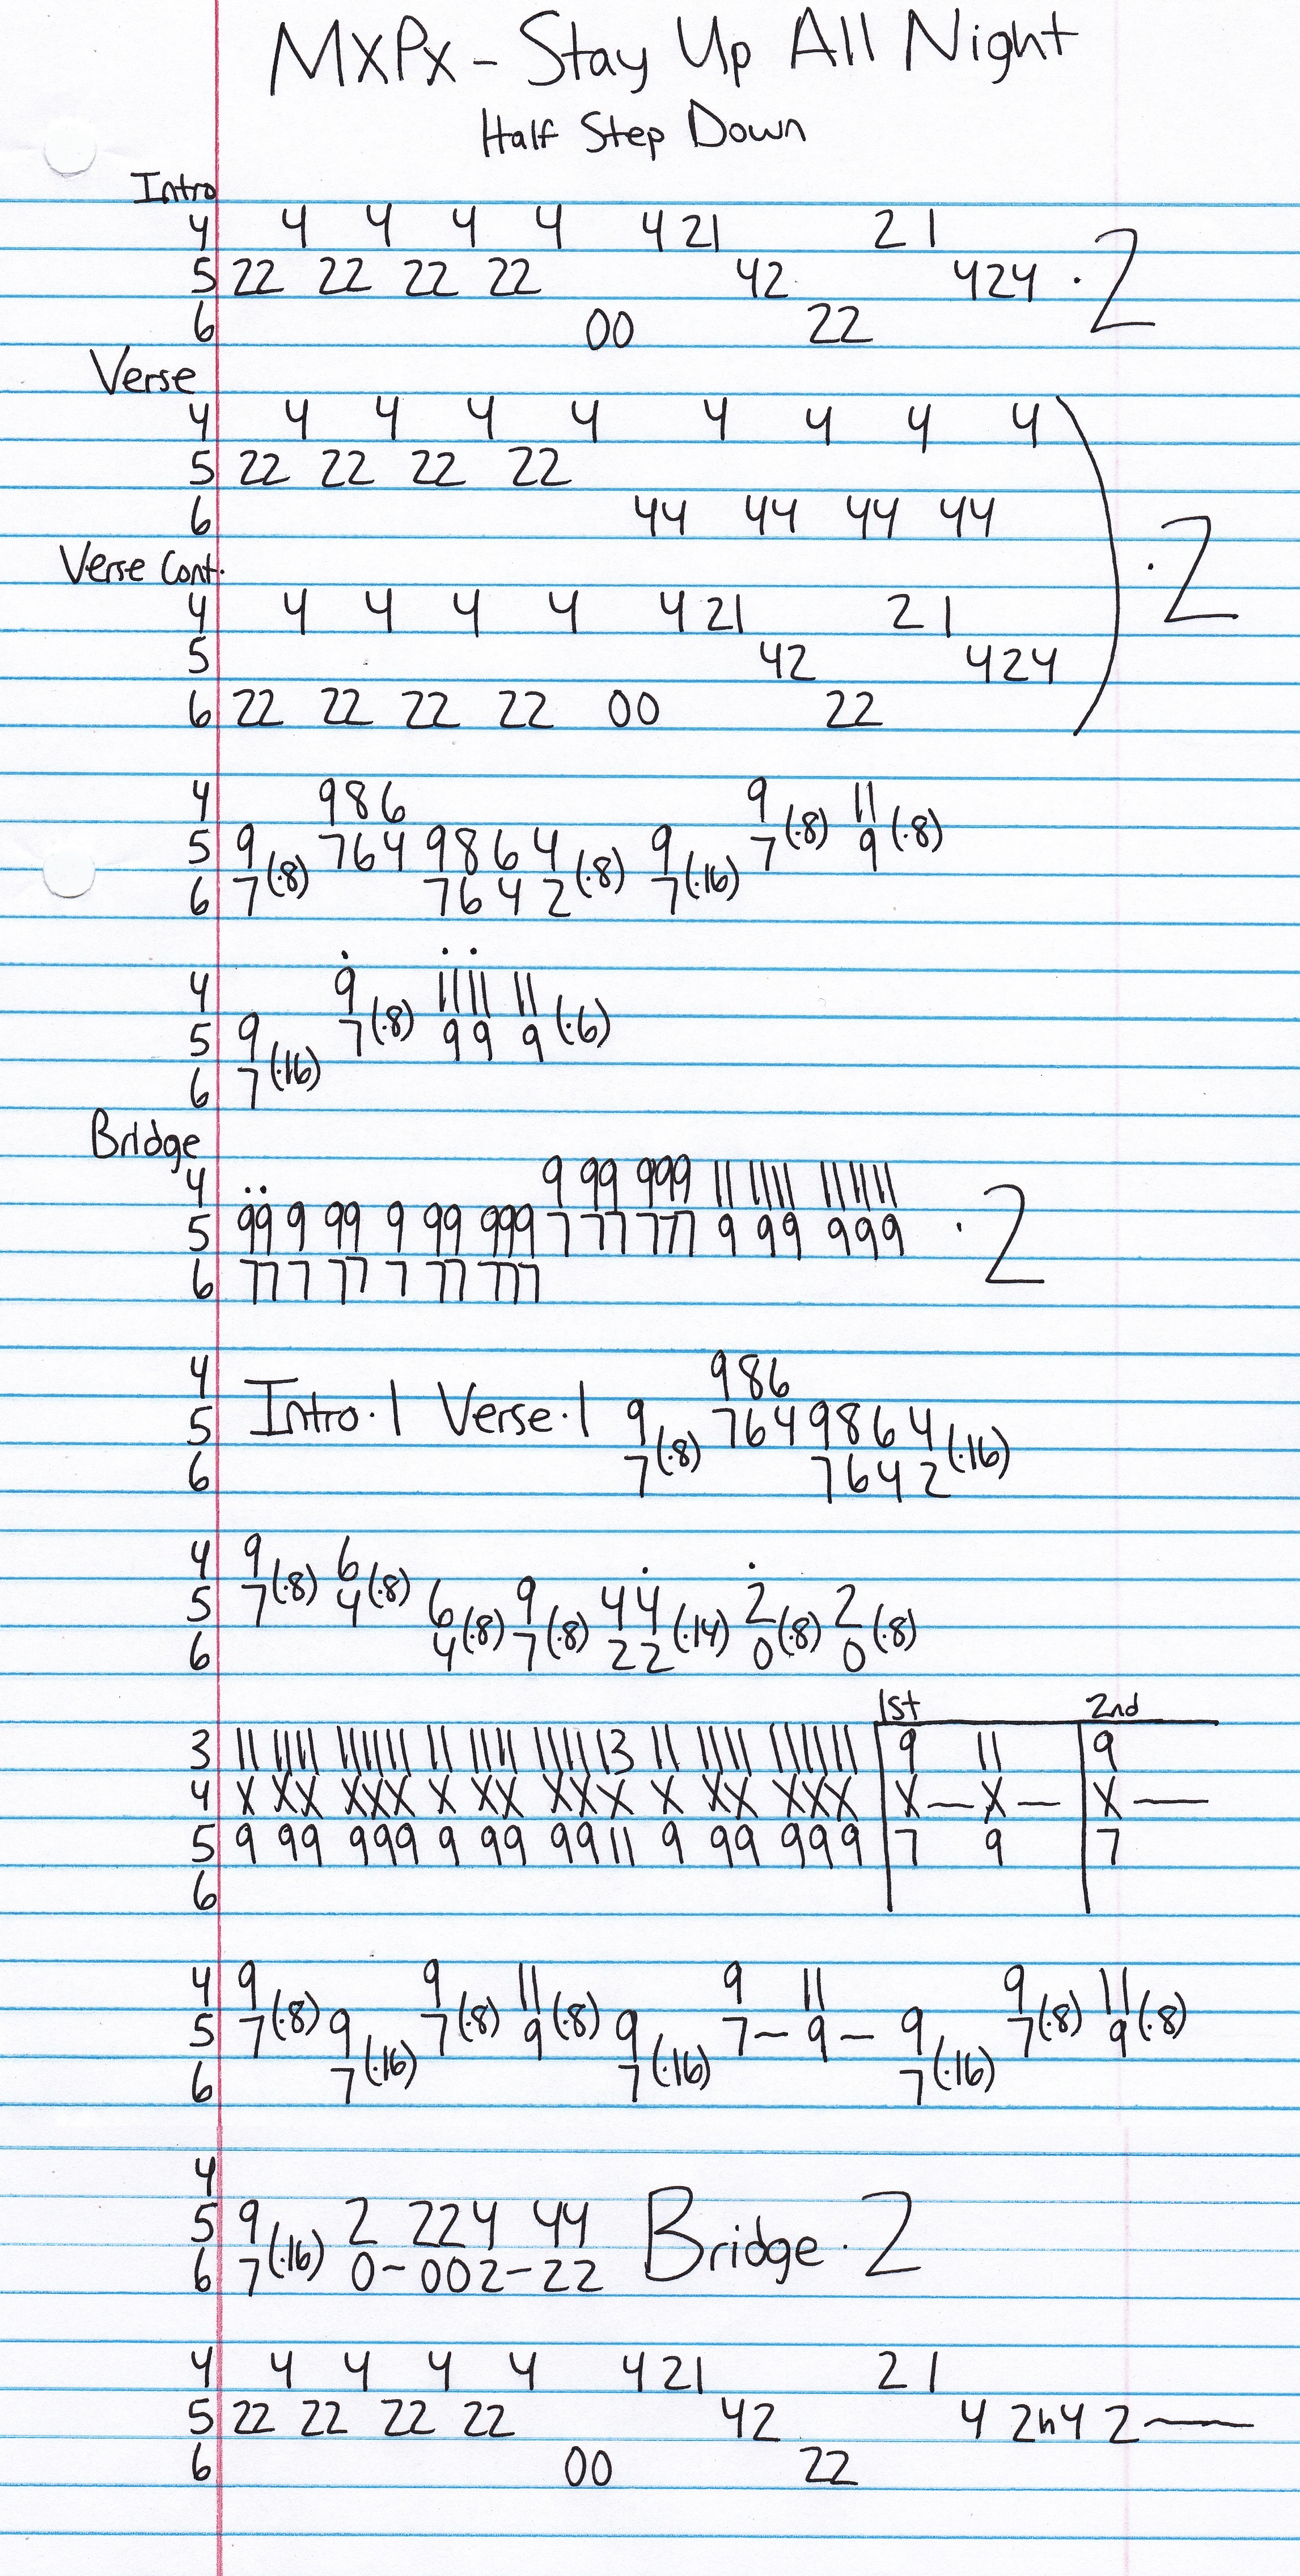 MXPX - Stay Up All Night
Half Step Down
Intro
4 4 4 4 4 4 21 2 1
5 22 22 22 22 42 424 · 2
6 00 22
Verse
4 4 4 4 4 4 4 4 4
5 22 22 22 22
6 44 44 44 44 ) · 2
Verse Cont.
4 4 4 4 4 4 21 2 1
5 42 424
6 22 22 22 22 00 22
4 986 9 11
5 9 (·8) 764 9864 (·8) 9 7 (·8) 9 (·8)
6 7 7642 7 (·16)
4 9 1111 11
5 9 7 (·8) 99 9 (·6)
6 7 (·16)
Bridge
4 9 99 999 11 1111 111111
5 99 9 99 9 99 999 7 77 777 9 99 999 · 2
6 77 7 77 7 77 777
4 986
5 Intro · 1 Verse · 1 9 7649864 (·16)
6 7 (·8) 7642
4 9 (·8) 6 (·8)
5 7 4 6 9 44 2 2
6 4 (·8) 7 (·8) 22 (·14) 0 (·8) 0 (·8)
1st 2nd
3 11 1111 111111 11 1111 111113 11 1111 111111 9 11 9
4 X XX XXX X XX XXX X XX XXX X — X — X —
5 9 99 999 9 99 9911 9 99 999 7 9 7
6
4 9 9 11 9 11 9 11
5 7 (·8) 9 7 (·8) 9 (·8) 9 7 – 9 – 9 7 (·8) 9 (·8)
6 7 (·16) 7 (·16) 7 (·16)
4
5 9 2 224 44 Bridge · 2
6 7 (·16) 0 – 002 – 22
4 4 4 4 4 4 21 2 1
5 22 22 22 22 42 4 2h4 2 —
6 00 22